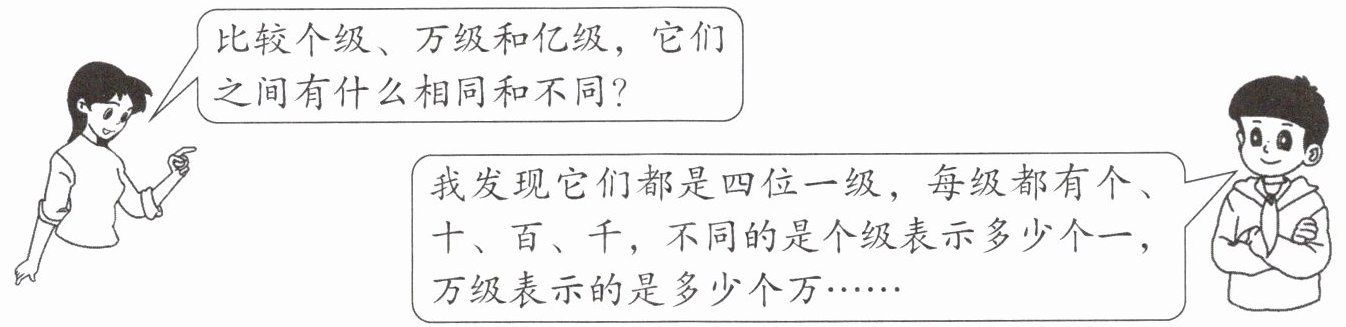 比较个级、万级和亿级，它们
之间有什么相同和不同？
我发现它们都是四位一级，每级都有个、
十、百、千，不同的是个级表示多少个一，
万级表示的是多少个万……